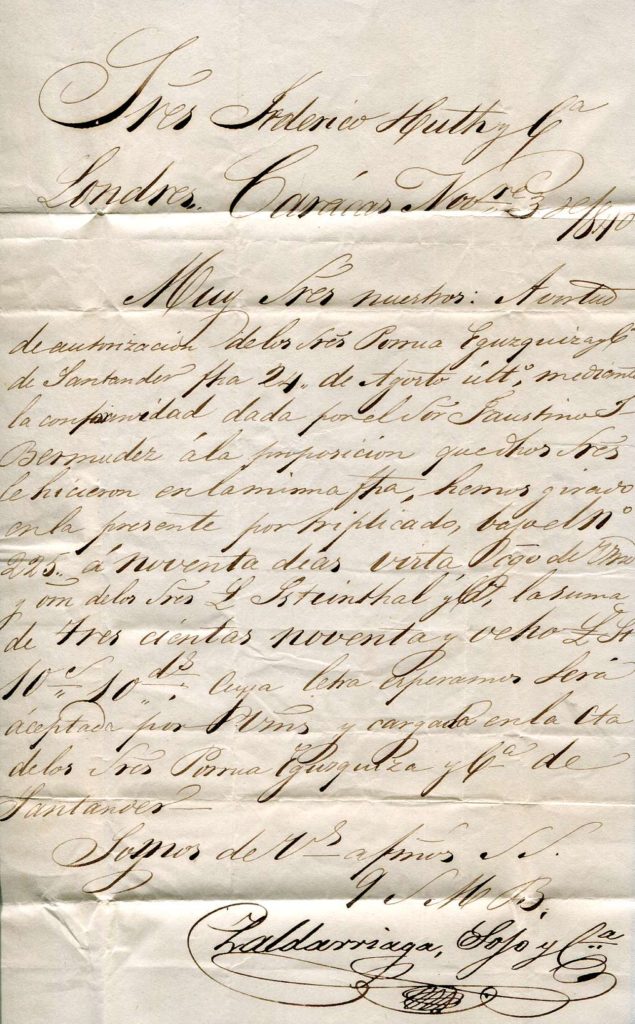 Sres Federico Huth y Ca
Londres. Carácas Novre 3 de 1840
Muy Sres nuestros: A virtud
de autorización de los Sres Porrua Eguzquiza y Ca
de Santander fha 24,, de Agosto últo, mediante
la conformidad dada por el Sor Faustino
Bermudez á la proposicion que dhos Sres
le hicieron en la misma fha, hemos girado
en la presente por triplicado, bajo el No
225,, á noventa dias vista
y orn de los Sres L Isteinthal y Ca, la suma
de tres cientas noventa y ocho L St
10,,s 10,,ds Cuya letra esperamos será
áceptada por Vms y cargada en la Cta
de los Sres Porrua Eguzquiza y Ca de
Santander—
Somos de Vs afmos S S.
Q S M B.
Zaldarriaga, Sojo y Ca